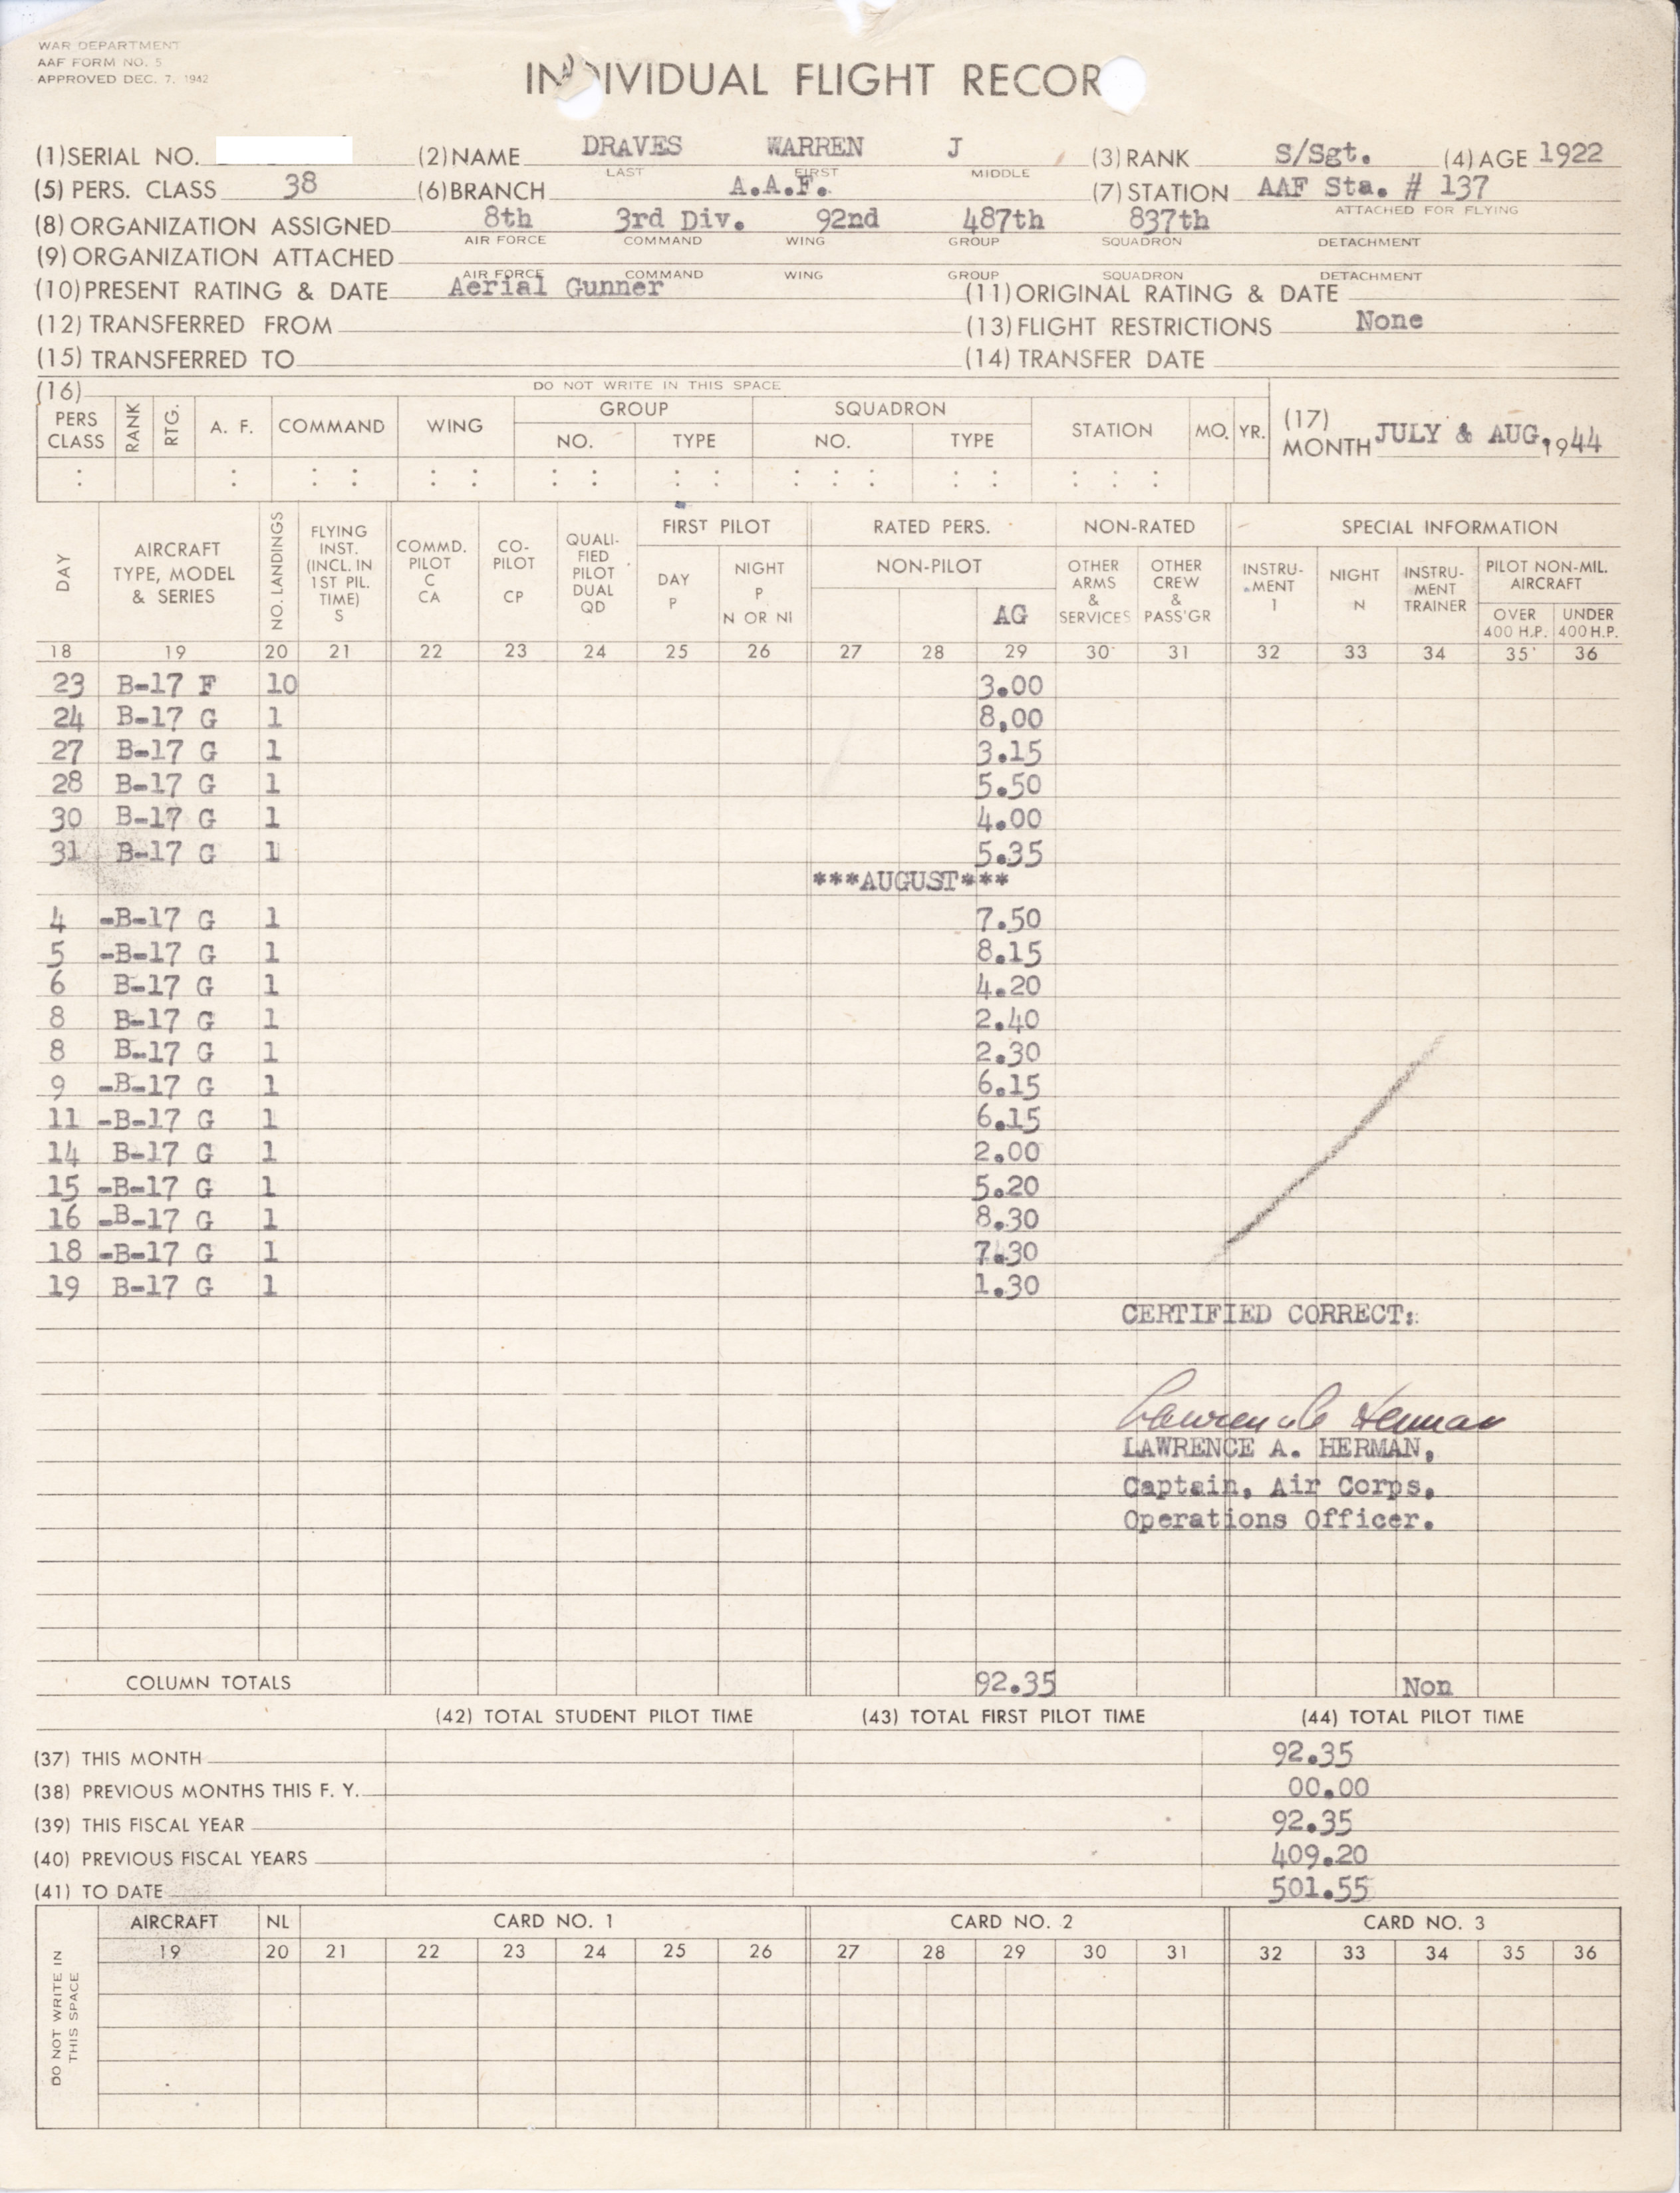 WAR DEPARTMENT
AAF FORM NO. 5
APPROVED DEC. 7, 1942
INDIVIDUAL FLIGHT RECOR
(1) SERIAL NO. (2) NAME DRAVES WARREN J (3) RANK S/Sgt. (4) AGE 1922
LAST FIRST MIDDLE
(5) PERS. CLASS 38 (6) BRANCH A.A.F. (7) STATION AAF Sta. # 137
ATTACHED FOR FLYING
(8) ORGANIZATION ASSIGNED 8th 3rd Div. 92nd 487th 837th
AIR FORCE COMMAND WING GROUP SQUADRON DETACHMENT
(9) ORGANIZATION ATTACHED
AIR FORCE COMMAND WING GROUP SQUADRON DETACHMENT
(10) PRESENT RATING & DATE Aerial Gunner (11) ORIGINAL RATING & DATE
(12) TRANSFERRED FROM (13) FLIGHT RESTRICTIONS None
(15) TRANSFERRED TO (14) TRANSFER DATE
(16) DO NOT WRITE IN THIS SPACE
PERS CLASS RANK RTG. A. F. COMMAND WING GROUP NO. TYPE SQUADRON NO. TYPE STATION MO. YR. (17) MONTH JULY & AUG, 1944
DAY AIRCRAFT TYPE, MODEL & SERIES NO. LANDINGS FLYING INST. (INCL. IN 1ST PIL. TIME) S COMMD. PILOT C CA CO-PILOT CP QUALI-FIED PILOT DUAL QD FIRST PILOT DAY P NIGHT P N OR NI RATED PERS. NON-PILOT AG NON-RATED OTHER ARMS & SERVICES OTHER CREW & PASS'GR SPECIAL INFORMATION INSTRU-MENT I NIGHT N INSTRU-MENT TRAINER PILOT NON-MIL. AIRCRAFT OVER 400 H.P. UNDER 400 H.P.
18 19 20 21 22 23 24 25 26 27 28 29 30 31 32 33 34 35 36
23 B-17 F 10 3.00
24 B-17 G 1 8,00
27 B-17 G 1 3.15
28 B-17 G 1 5.50
30 B-17 G 1 4.00
31 B-17 G 1 5.35
***AUGUST***
4 -B-17 G 1 7.50
5 -B-17 G 1 8.15
6 B-17 G 1 4.20
8 B-17 G 1 2.40
8 B-17 G 1 2.30
9 -B-17 G 1 6.15
11 -B-17 G 1 6.15
14 B-17 G 1 2.00
15 -B-17 G 1 5.20
16 -B-17 G 1 8.30
18 -B-17 G 1 7.30
19 B-17 G 1 1.30
CERTIFIED CORRECT:
LAWRENCE A. HERMAN,
Captain, Air Corps,
Operations Officer.
COLUMN TOTALS 92.35 Non
(42) TOTAL STUDENT PILOT TIME (43) TOTAL FIRST PILOT TIME (44) TOTAL PILOT TIME
(37) THIS MONTH 92.35
(38) PREVIOUS MONTHS THIS F. Y. 00.00
(39) THIS FISCAL YEAR 92.35
(40) PREVIOUS FISCAL YEARS 409.20
(41) TO DATE 501.55
DO NOT WRITE IN THIS SPACE AIRCRAFT NL CARD NO. 1 CARD NO. 2 CARD NO. 3
19 20 21 22 23 24 25 26 27 28 29 30 31 32 33 34 35 36